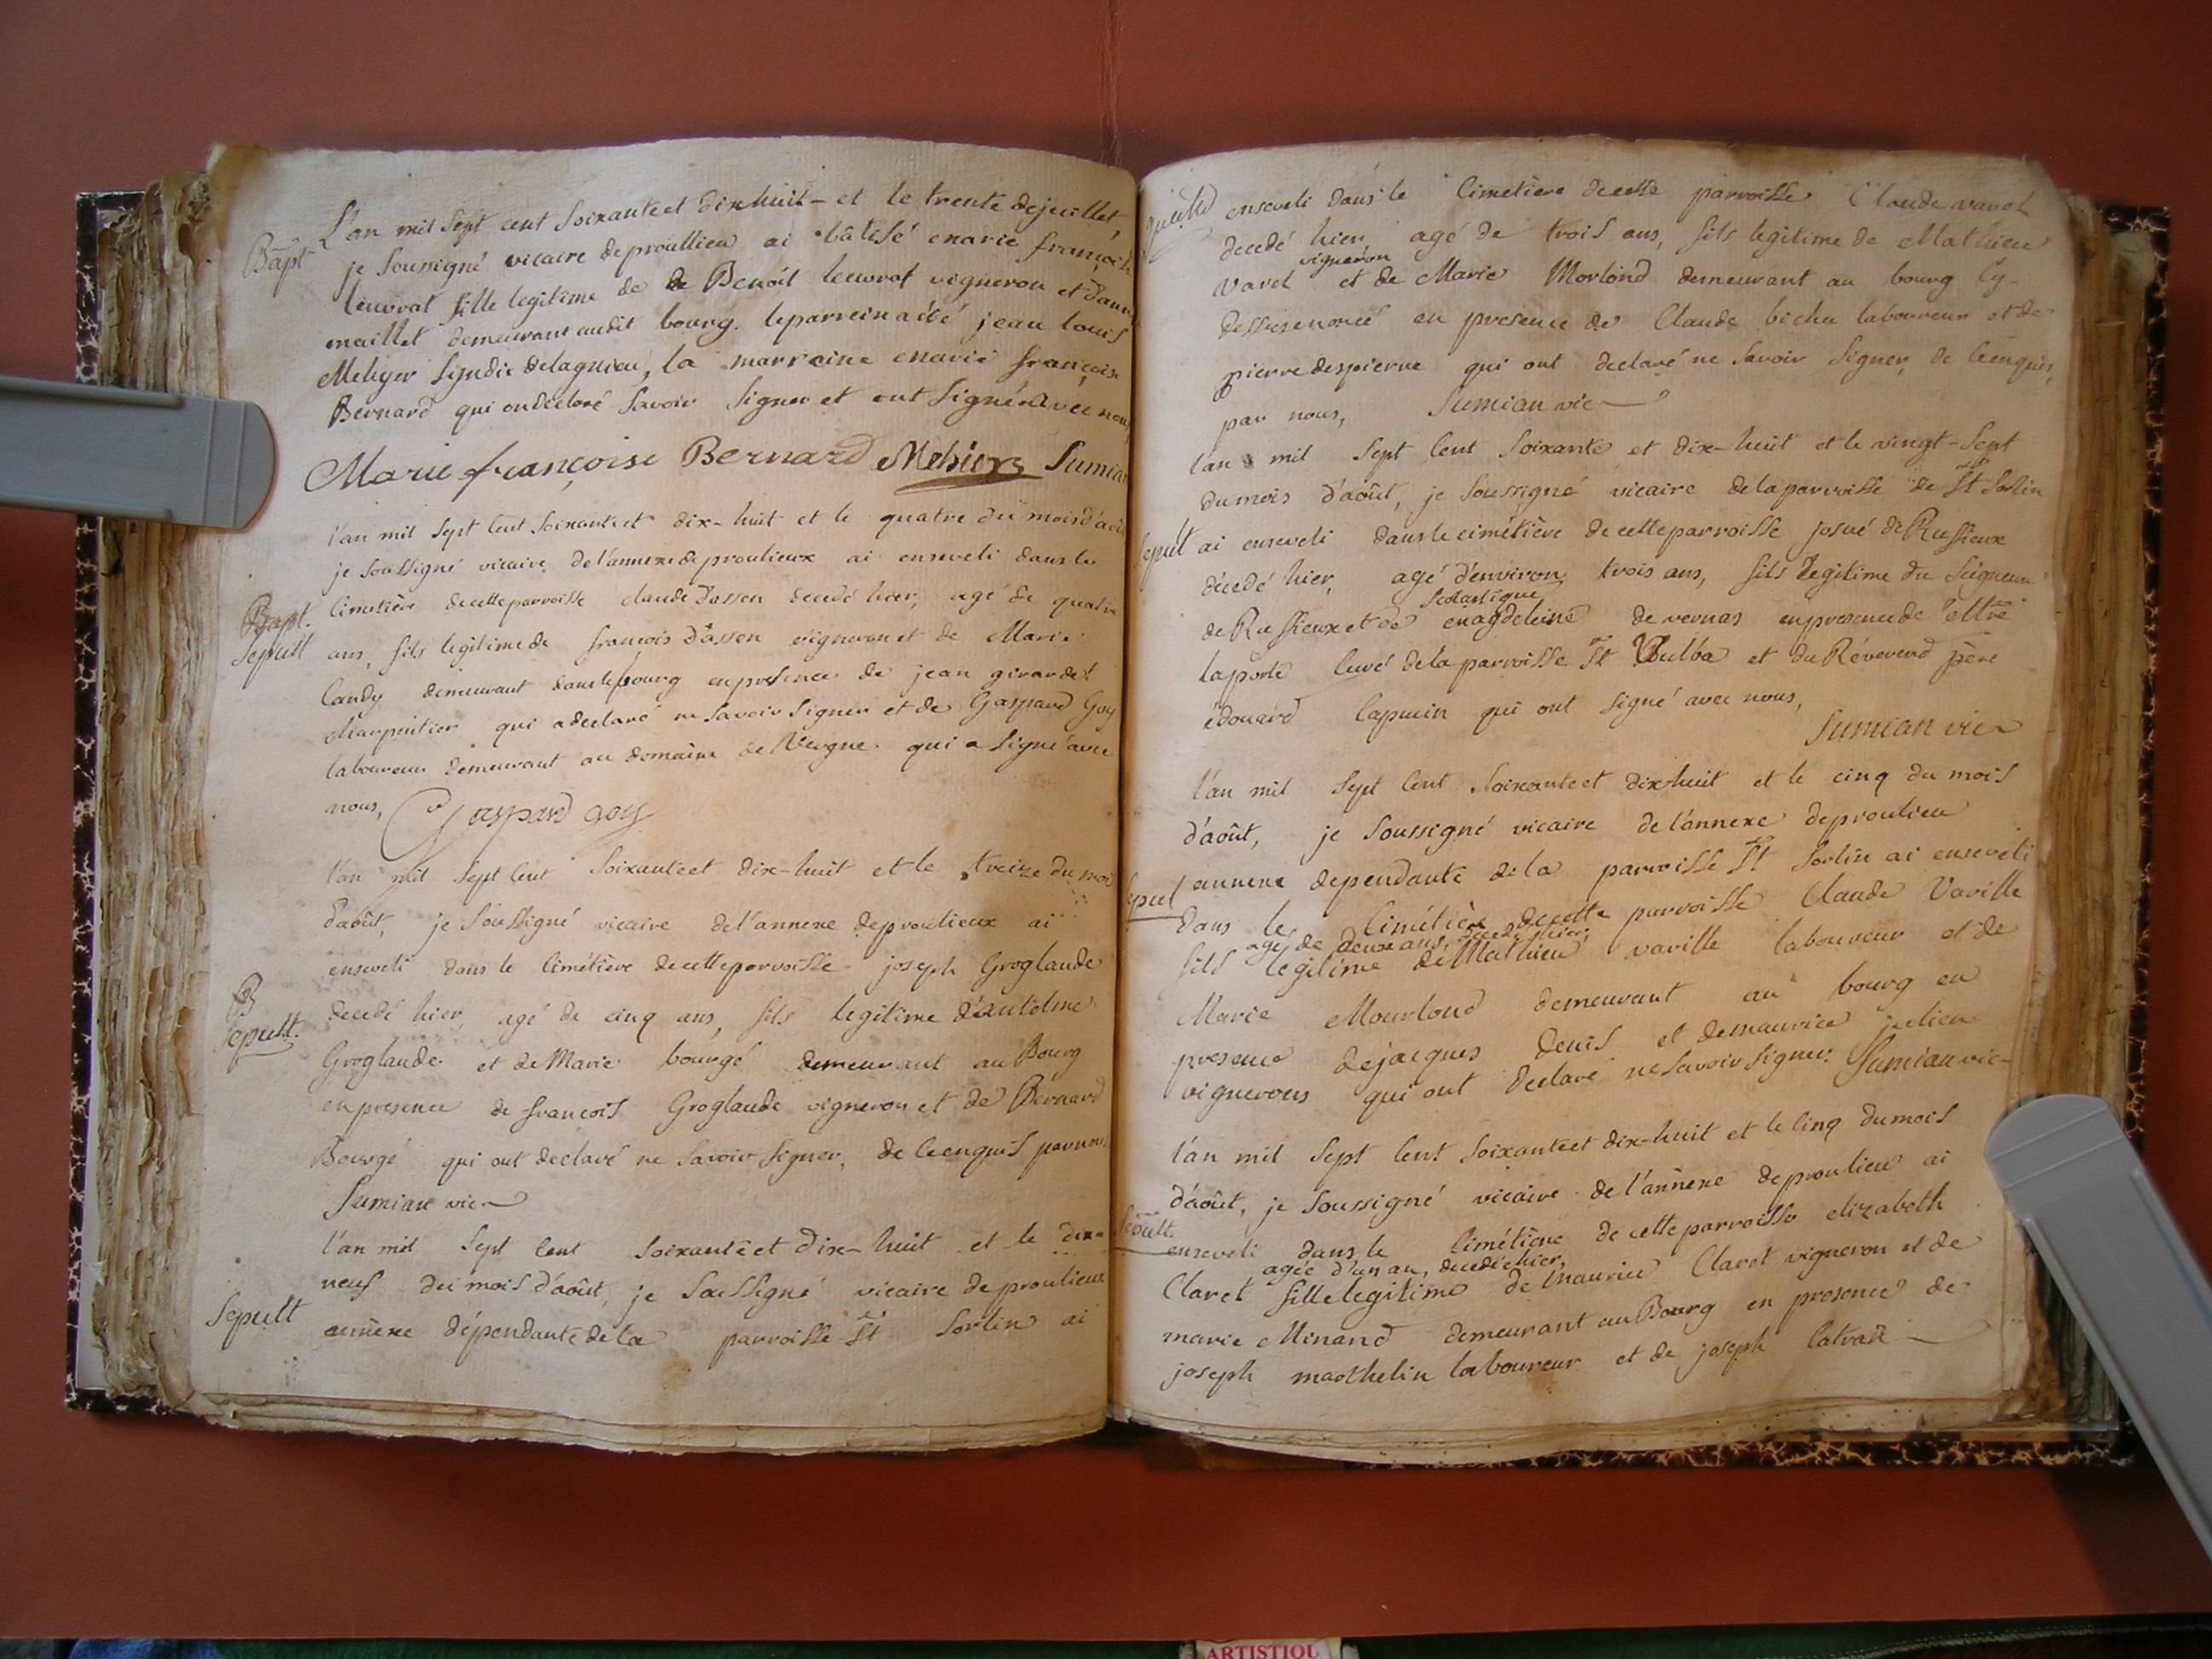 L'an mil sept cent soixante et dix huit - et le trente de juillet,
Bapt je soussigné vicaire de proullieu ai bâtisé marie françoise
leuvrat fille legitime de de Benoit leuvrat vigneron et d'anne
maillet demeurant audit bourg. le parrein a été jean louis
Mehyer sindic de lagnieu, la marraine marie françoise
Bernard qui on declaré savoir signer et ont signé avec nous
Marie françoise Bernard Mehier Sumian
l'an mil sept cent soixante et dix-huit et le quatre du mois d'août
je soussigné vicaire de l'annexe de proulieux ai enseveli dans le
Bapt. cimetière de cette parroisse claude dassen decedé hier, agé de quatre
sepult ans, fils legitime de françois dassen vigneron et de Marie
Candy demeurant dans le bourg en presence de jean girardet
charpentier qui a declaré ne savoir signer et de Gaspard Goy
laboureur demeurant au domaine de Vergne qui a signé avec
nous, Gaspard goy
l'an mil sept cent soixante et dix-huit et le treize du mois
d'août, je soussigné vicaire de l'annexe de proulieux ai
enseveli dans le cimétière de cette parroisse joseph Groglaude
B
sepult. decedé hier agé de cinq ans, fils legitime d'antelme
Groglaude et de Marie bourgé demeurant au Bourg
en presence de françois Groglaude vigneron et de Bernard
Bourgé qui ont declaré ne savoir signer, de ce enquis par nous
Sumian vic
l'an mil sept cent soixante et dix-huit et le dix-
neuf du mois d'août, je soussigné vicaire de proulieux
sepult annexe dépendante de la parroisse St Sorlin ai
enseveli dans le cimetière de cette parroisse Claude varet
decedé hier, agé de trois ans, fils legitime de Mathieu
vigneron
varet et de Marie Morlond demeurant au bourg cy-
dessus enoncé en presence de Claude bichu laboureur et de
pierre despierre qui ont declaré ne savoir signer, de ce enquis,
par nous, Sumian vic
l'an mil sept cent soixante et dix-huit et le vingt-sept
du mois d'août, je soussigné vicaire de la parroisse de St Sorlin
sepult ai enseveli dans le cimétière de cette parroisse josué de Russieux
décedé hier, agé d'environ trois ans, fils legitime du seigneur
scolastique
de Russieux et de magdeleine de vernas en presence de
laporte curé de la parroisse St Vulba et du Réverend père
édouard capucin qui ont signé avec nous,
Sumian vic
l'an mil sept cent soixante et dix-huit et le cinq du mois
d'août, je soussigné vicaire de l'annexe de proulieu
sepul annexe dependante de la parroisse St Sorlin ai enseveli
dans le cimétière de cette parroisse Claude Vaville
agé de deux ans, decedé hier,
fils legitime de Mathieu vaville laboureur et de
Marie Mourlond demeurant au bourg en
presence de jacques denis et de maurice julien
vignerons qui ont declaré ne savoir signer. Sumian vic-
l'an mil sept cent soixante et dix-huit et le cinq du mois
d'août, je soussigné vicaire de l'annexe de proulieu ai
sepult. enseveli dans le cimétière de cette parroisse elizabeth
agée d'un an, decedé hier,
Claret fille legitime de maurice Claret vigneron et de
marie Minand demeurant au Bourg en presence de
joseph marthelin laboureur et de joseph
ARTISTIQU